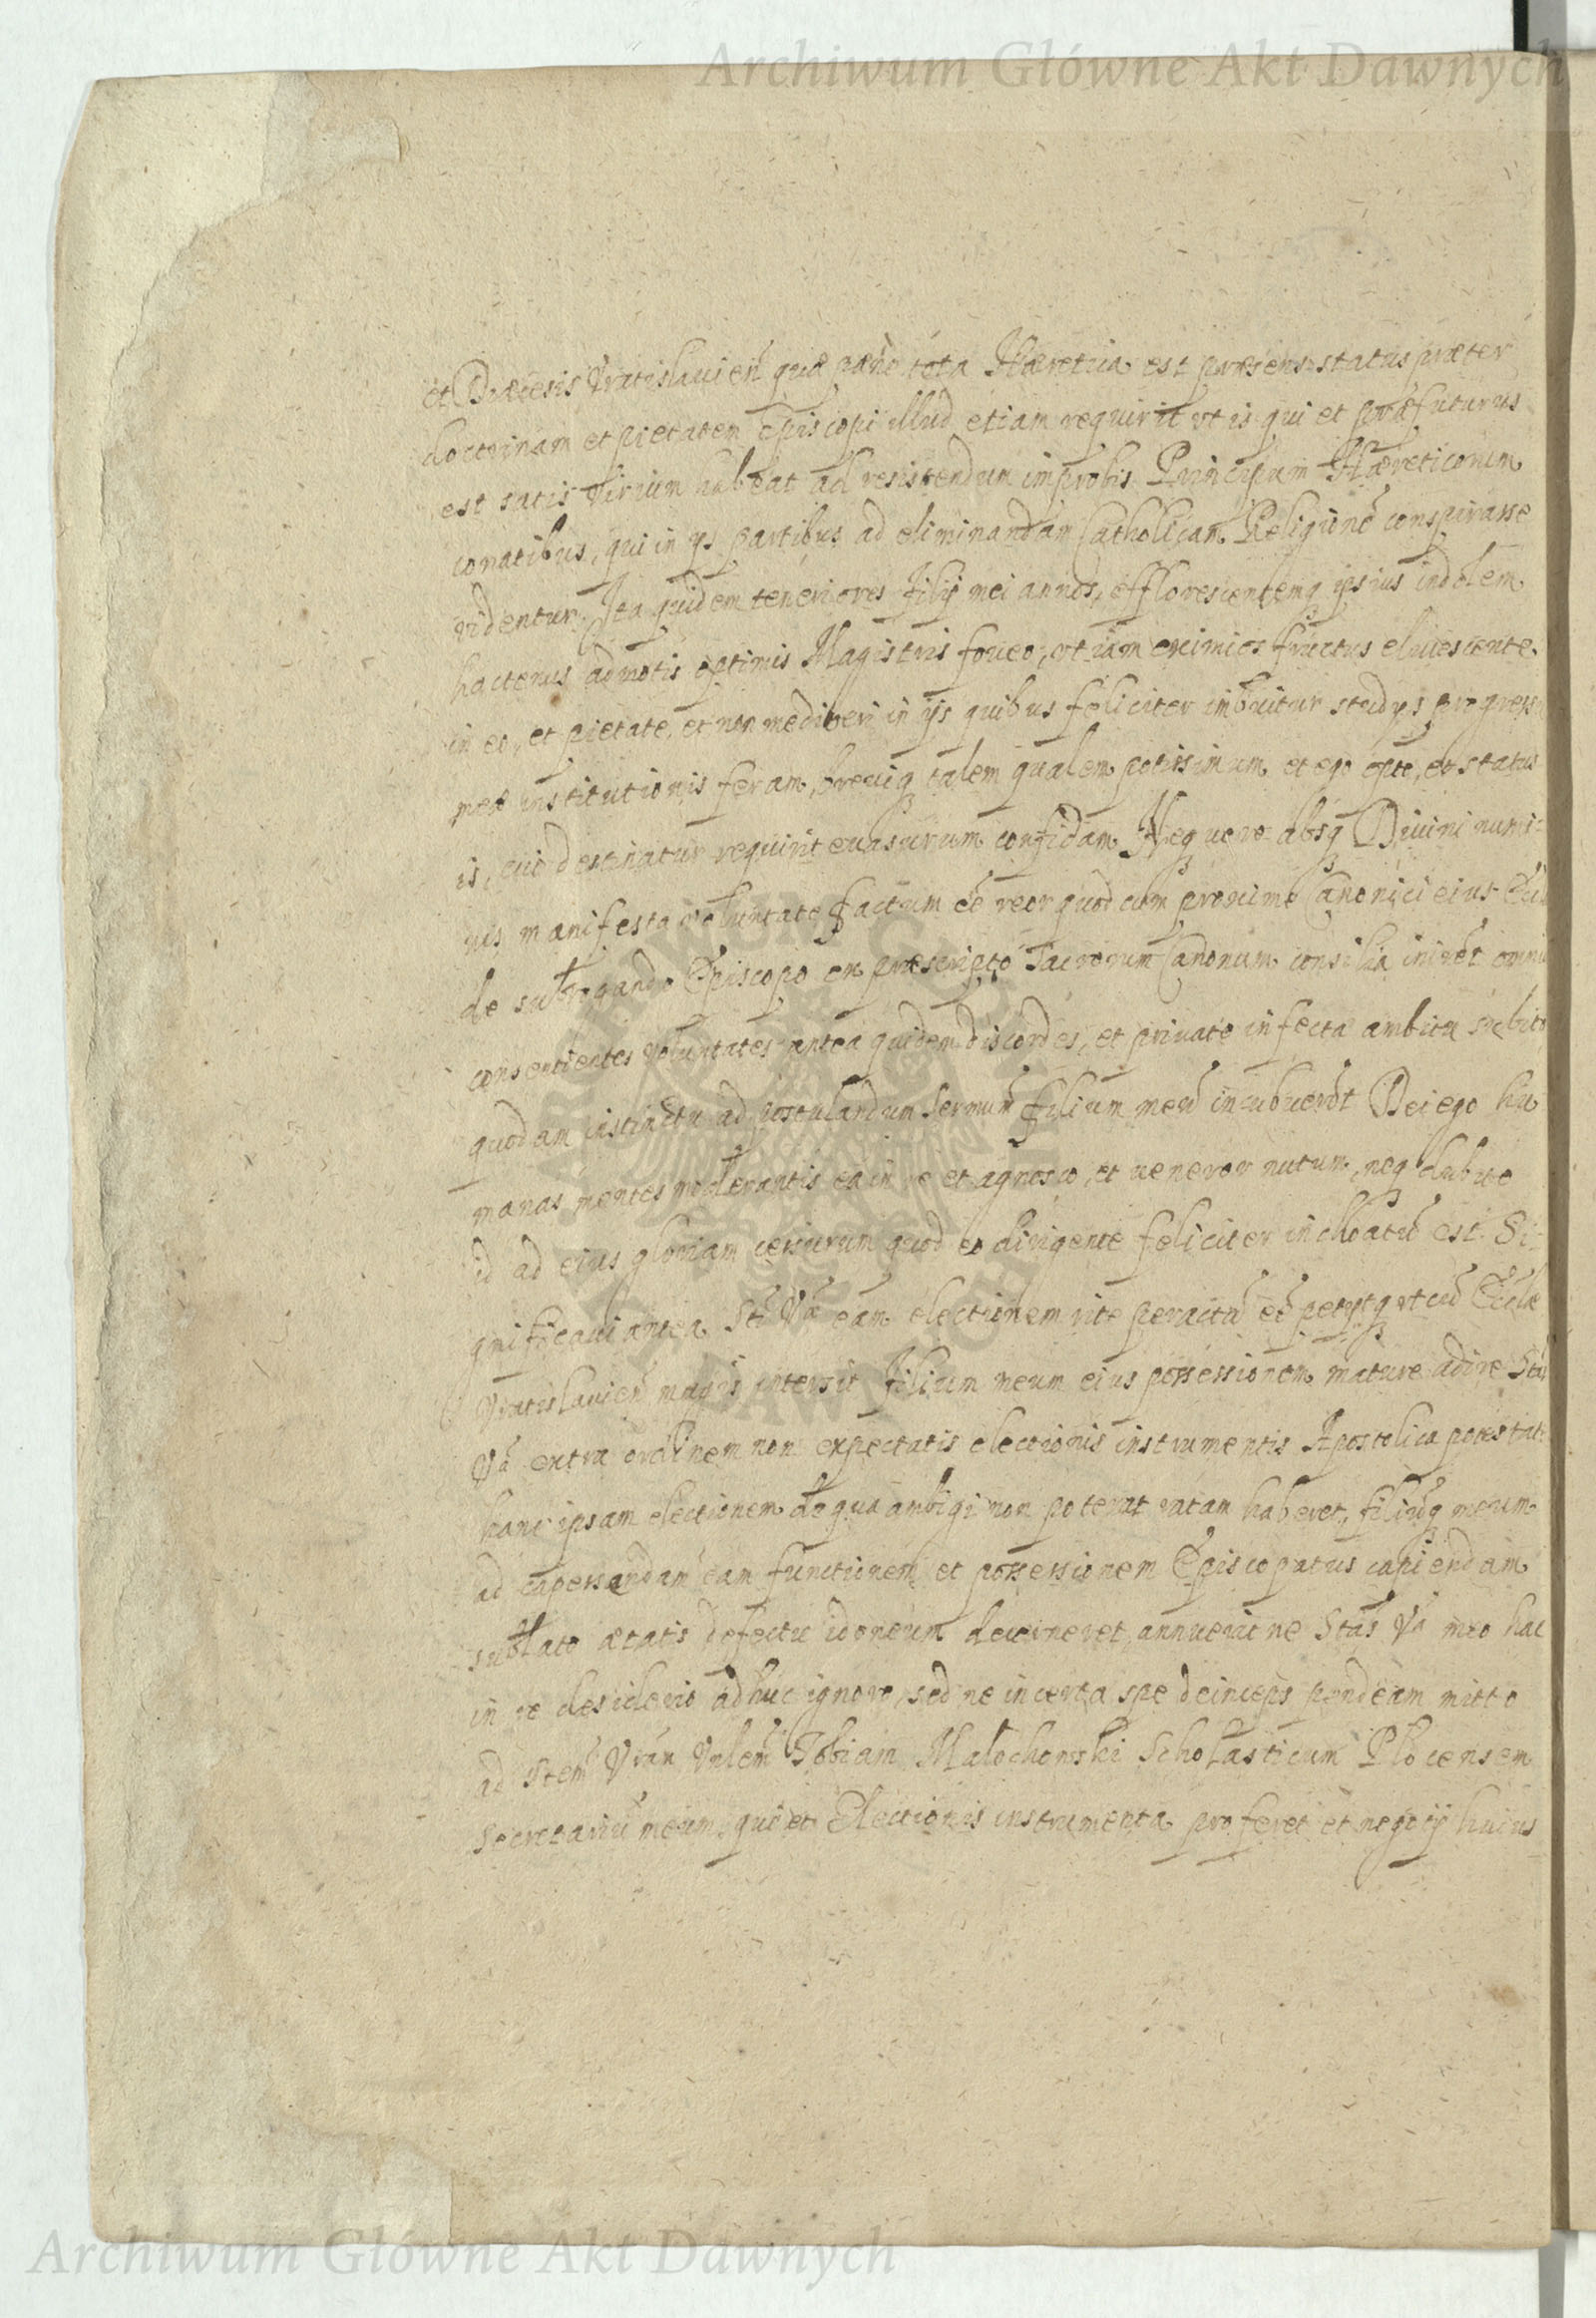 Archiwum Główne Akt Dawnych
et Diæcesis Vratislauien̄ quæ pæne tota Hæretica est præsens status præter
doctrinam et pietatem Episcopi illud etiam requirit vt is qui et præfuturus
est satis virium habeat ad resistendum improbis Principum Hæreticorum
conatibus, qui in ys partibus ad eliminandam Catholicam Religionē conspirasse
videntur. Ita quidem teneriores Filij mei annos, efflorescentemq ipsius indolem
hactenus admotis optimis Magistris foueo, vt iam eximios fructus elucescente
in eo, et pietate, et non mediocri in ijs quibus feliciter imbuitur studys progressu
meæ institutionis feram, breuiq talem qualem potissimum et ego opto, et status
is, cui destinatur requirit euasurum confidam. Neq uero absq Diuini numi=
nis manifesta voluntate factum eē reor quod cum proxime Canonici eius Eccl
de subrogando Episcopo ex præscripto Sacrorum Canonum consilia inirēt omniū
consentientes voluntates antea quidem discordes, et priuate infecta ambitu subito
quodam instinctu ad postulandum Sermum̄ filium meū incubuerūt Dei ego hu
manas mentes moderantis ea in re et agnosco, et ueneror nutum, neq dubito
id ad eius gloriam cessurum quod eo dirigente feliciter inchoatū est. Si=
gnificaui antea Sti Vræ eam electionem rite peractā eē petyq vt cū Eccl̄æ
Vratislauien̄ magis intersit Filium meum eius possessionem mature adire Stas
Va extra ordinem non expectatis electionis instrumentis Apostolica potestate
hanc ipsam electionem de qua ambigi non poterat ratam haberet, filiūq meum
ad capessendam eam functionem et possessionem Episcopatus capiendam
sublato ætatis defectu idoneum decerneret, annuerit ne Stas Va meo hac
in re desiderio adhuc ignoro, sed ne incerta spe deinceps pendeam mitto
ad Stem Vram Vnlem Tobiam Malochowski Scholasticum Plocensem
Secretariū meum, qui et Electionis instrumenta proferet et negotij huius
Archiwum Główne Akt Dawnych